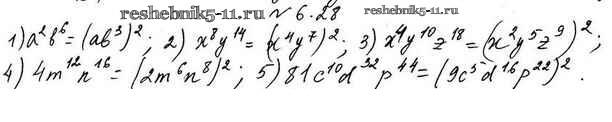 reshebnik5-11.ru № 6.28 reshebnik5-11.ru
1) a²b⁶ = (ab³)²; 2) x⁸y¹⁴ = (x⁴y⁷)²; 3) x⁴y¹⁰z¹⁸ = (x²y⁵z⁹)²;
4) 4m¹²n¹⁶ = (2m⁶n⁸)²; 5) 81c¹⁰d³²p⁴⁴ = (9c⁵d¹⁶p²²)².